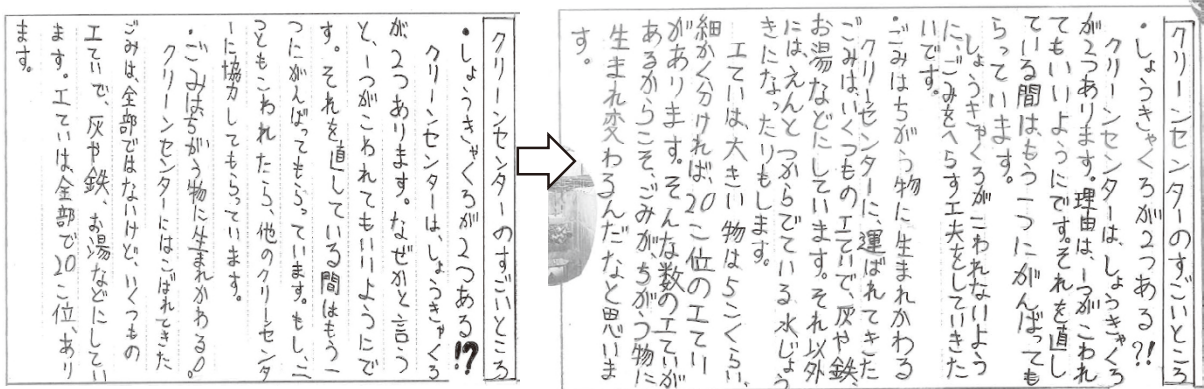 クリーンセンターのすごいところ
・しょうきゃくろが2つある!?
クリーンセンターは、しょうきゃくろ
が、2つあります。なぜかと言う
と、1つがこわれてもいいようにで
す。それを直している間はもう一
つにがんばってもらっています。もし、二
つともこわれたら、他のクリーンセンタ
ーに協力してもらっています。
・ごみはちがう物に生まれかわる。
クリーンセンターにはこばれてきた
ごみは、全部ではないけど、いくつもの
工ていで、灰や鉄、お湯などにしてい
ます。工ていは、全部で20こ位、あり
ます。
クリーンセンターのすごいところ
・しょうきゃくろが2つある?!
クリーンセンターは、しょうきゃくろ
が2つあります。理由は、1つがこわれ
てもいいようにです。それを直し
ている間はもう一つにがんばっても
らっています。
しょうきゃくろがこわれないよう
に、ごみをへらす工夫をしていきた
いです。
・ごみはちがう物に生まれかわる
クリーンセンターに、運ばれてきた
ごみは、いくつもの工ていで、灰や鉄、
お湯などにしています。それ以外
には、えんとつからでている水じょう
きになったりもします。
工ていは、大きい物は5こくらい、
細かく分ければ、20こ位の工てい
があります。そんな数の工ていが
あるからこそ、ごみが、ちがう物に
生まれ変わるんだなと思いま
す。